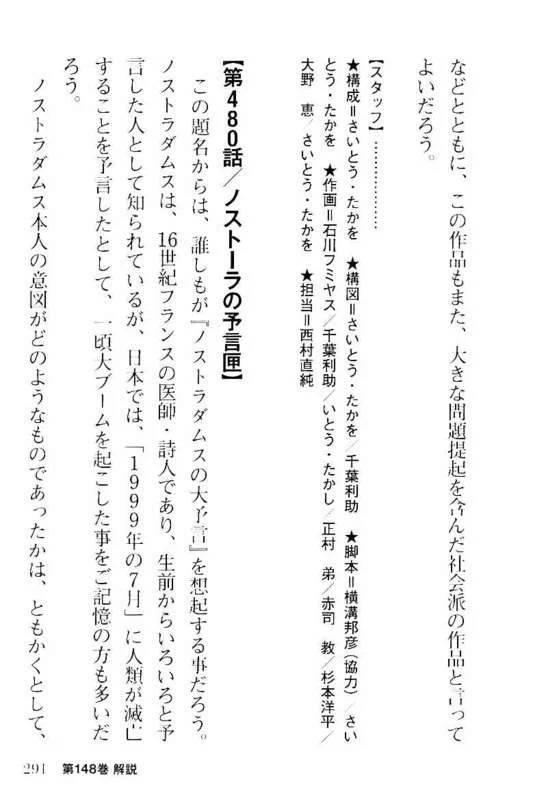 などとともに、この作品もまた、大きな問題提起を含んだ社会派の作品と言って
よいだろう。
【スタッフ】………………
★構成＝さいとう・たかを　★構図＝さいとう・たかを／千葉利助　★脚本＝横溝邦彦（協力）／さい
とう・たかを　★作画＝石川フミヤス／千葉利助／いとう・たかし／正村　弟／赤司　教／杉本洋平／
大野　恵／さいとう・たかを　★担当＝西村直純
【第480話／ノストーラの予言匣】
この題名からは、誰しもが『ノストラダムスの大予言』を想起する事だろう。
ノストラダムスは、16世紀フランスの医師・詩人であり、生前からいろいろと予
言した人として知られているが、日本では、「1999年の7月」に人類が滅亡
することを予言したとして、一頃大ブームを起こした事をご記憶の方も多いだ
ろう。
ノストラダムス本人の意図がどのようなものであったかは、ともかくとして、
291　第148巻 解説